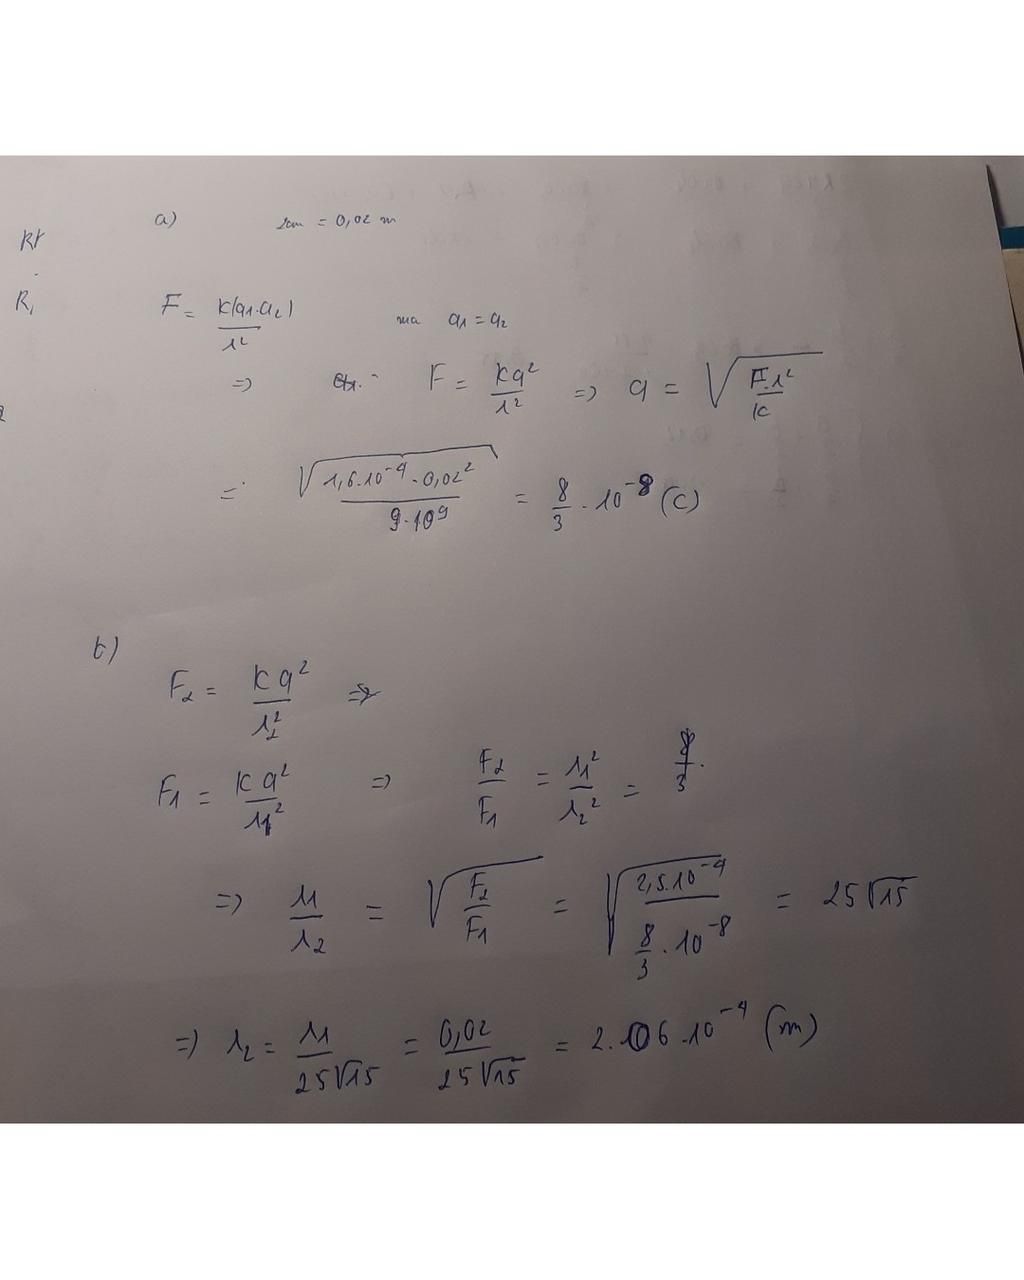 a) 2cm = 0,02 m
Rt
R,
F = k(q1.q2) / r² mà q1 = q2
=> F = kq² / r² => q = √(F.r² / k)
= √(1,6.10⁻⁴.0,02² / 9.10⁹) = 8/3 . 10⁻⁸ (C)
b)
F2 = kq² / r2² =>
F1 = kq² / r1² => F2/F1 = r1²/r2² = 8/3.
=> r1/r2 = √(F2/F1) = √(2,5.10⁻⁴ / 8/3 . 10⁻⁸) = 25√15
=> r2 = r1 / 25√15 = 0,02 / 25√15 = 2.06.10⁻⁴ (m)